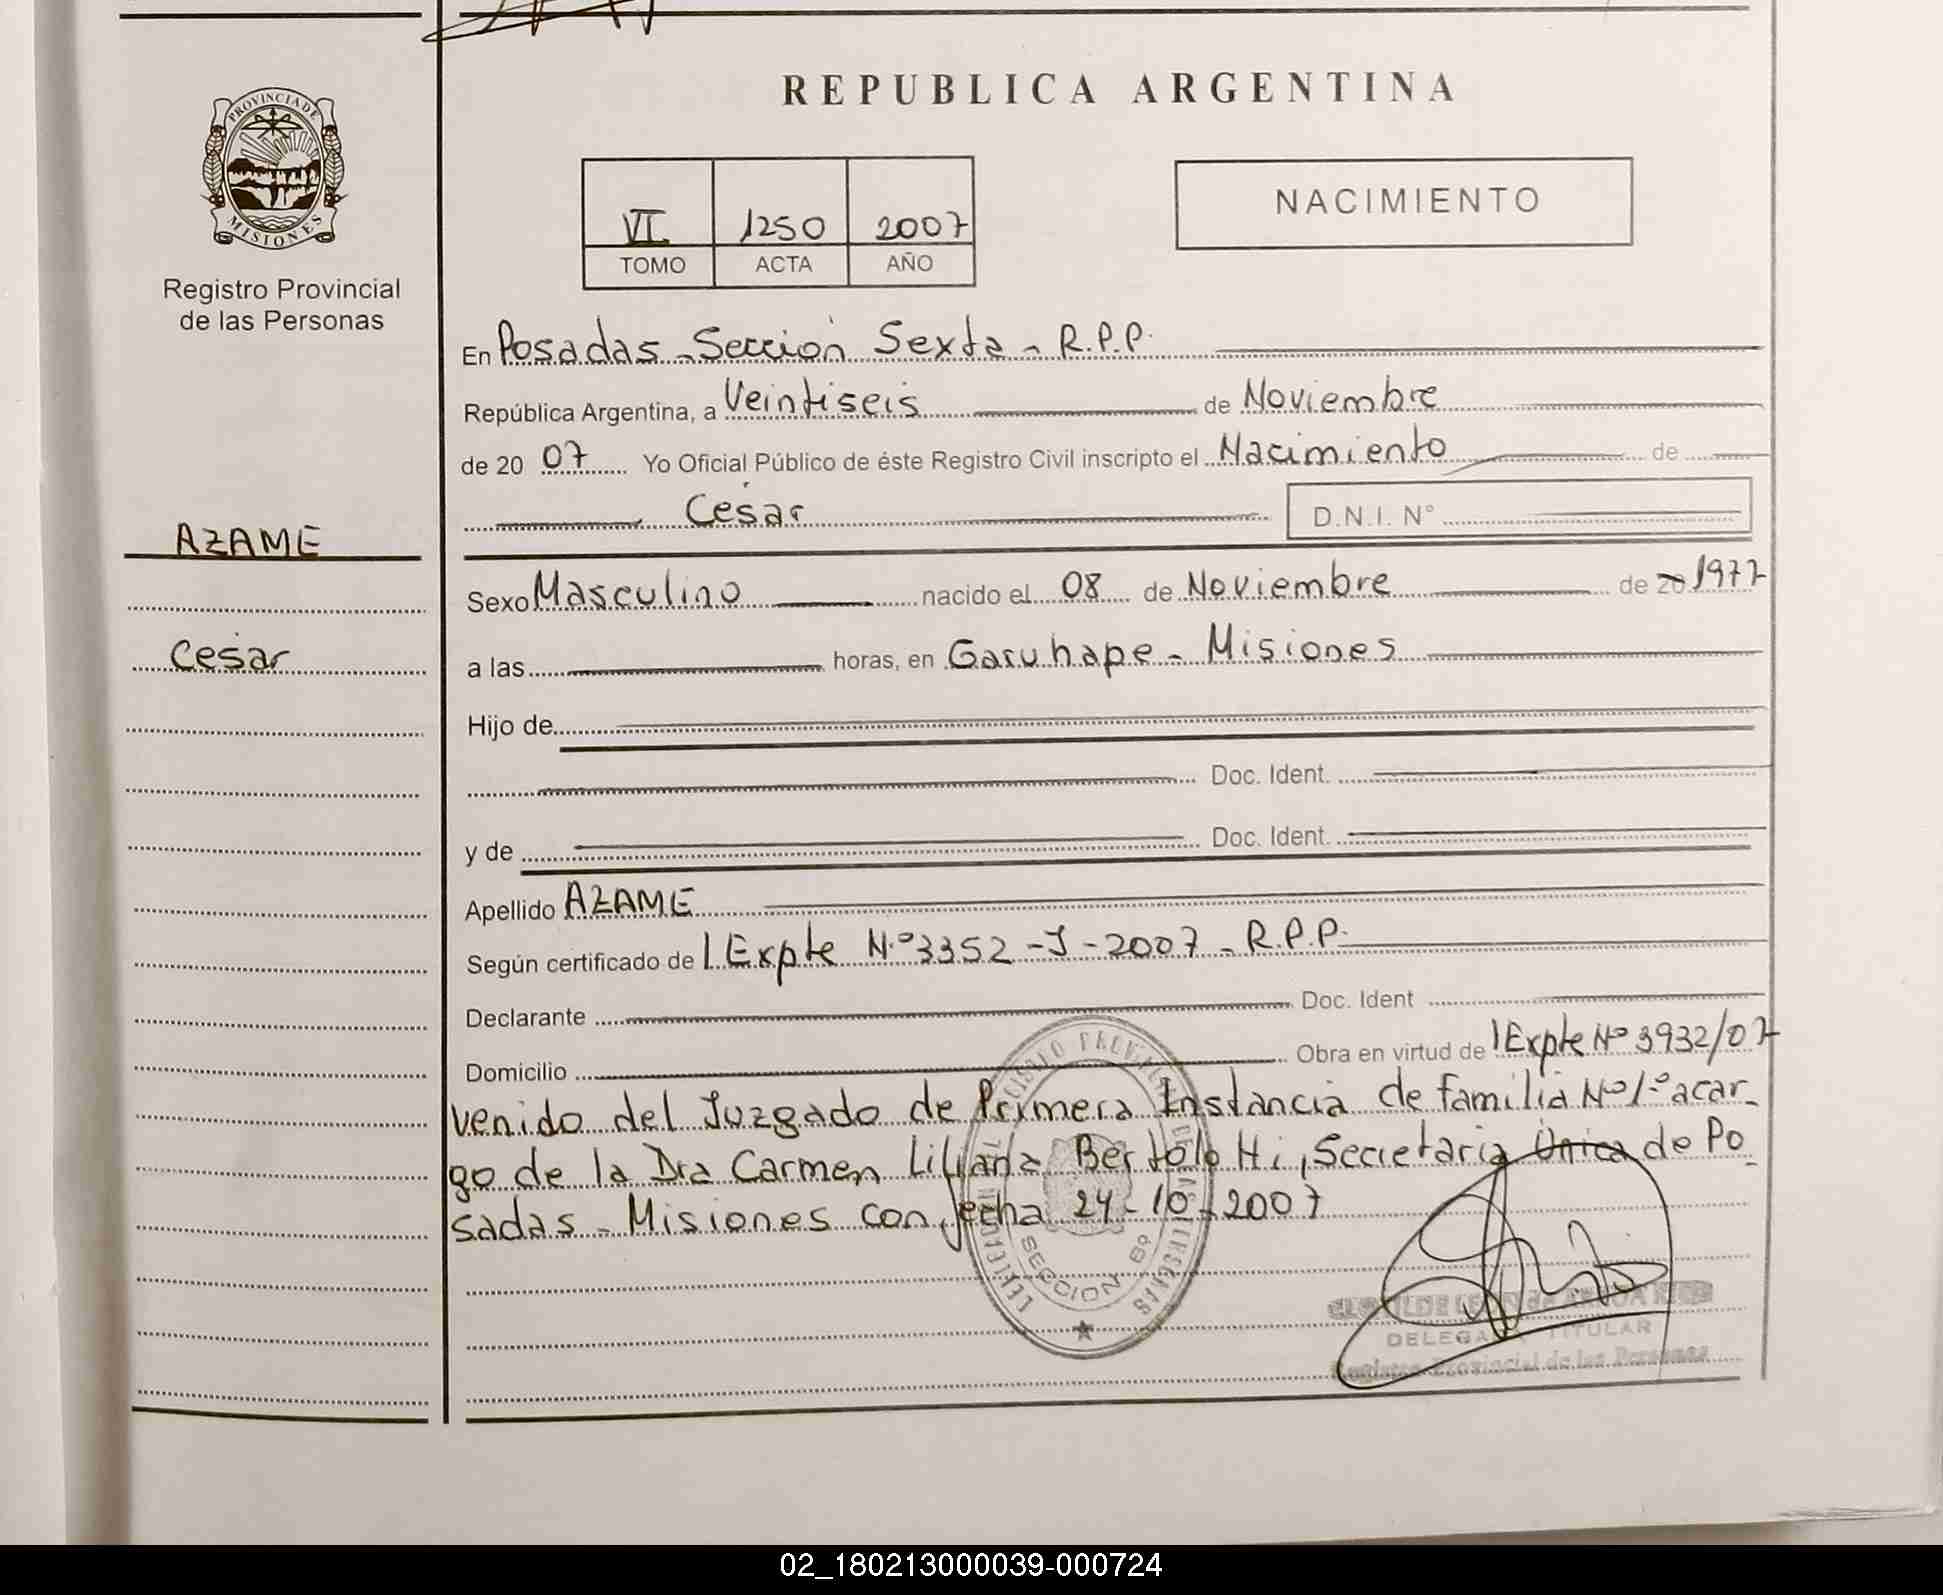 PROVINCIA DE
MISIONES
Registro Provincial
de las Personas
AZAME
Cesar
REPUBLICA ARGENTINA
VI 1250 2007
TOMO ACTA AÑO
NACIMIENTO
En Posadas - Sección Sexta - R.P.P.
República Argentina, a Veintiseis de Noviembre
de 20 07 Yo Oficial Público de éste Registro Civil inscripto el Nacimiento de
Cesar D.N.I. N°
Sexo Masculino nacido el 08 de Noviembre de 20 1977
a las horas, en Garuhape - Misiones
Hijo de
Doc. Ident.
y de Doc. Ident.
Apellido AZAME
Según certificado de Expte N.º 3352 - J - 2007 - R.P.P.
Declarante Doc. Ident
Domicilio Obra en virtud de Expte Nº 3932/07
venido del Juzgado de Primera Instancia de familia Nº 1º acar-
go de la Dra Carmen Liliana Bertolotti, Secretaria Única de Po-
sadas - Misiones con fecha 24-10-2007
SECCION 6º
DELEGADA TITULAR
Registro Provincial de las Personas
02_180213000039-000724